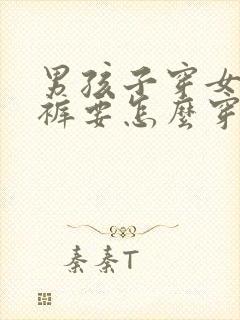 男孩子穿女
裤要怎麼穿
秦秦T